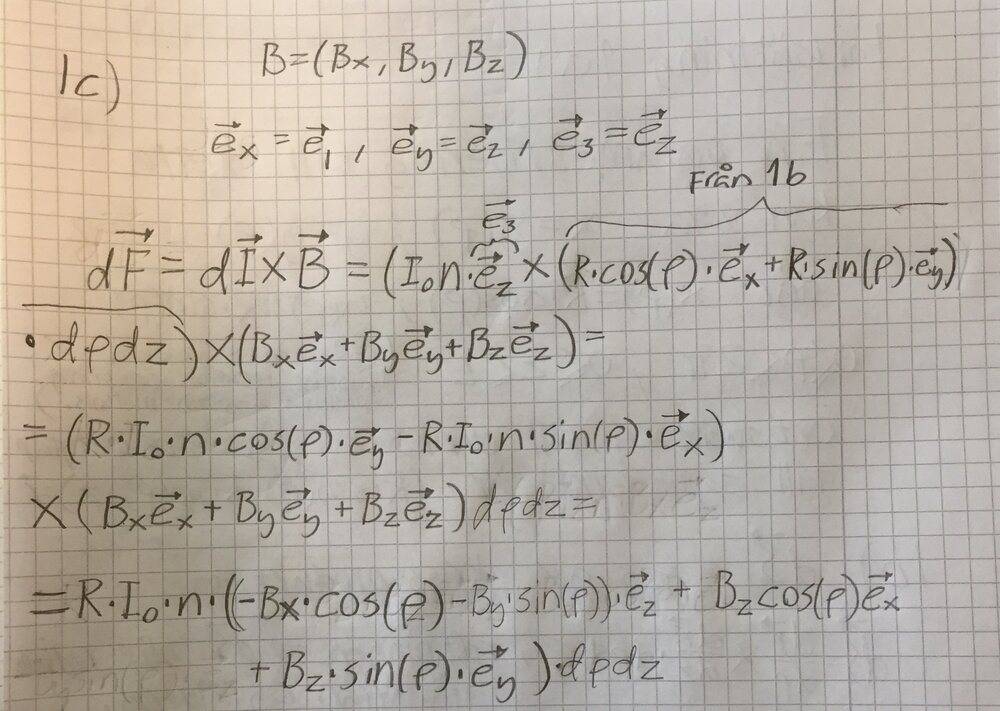 1c)
B=(Bx, By, Bz)
e⃗x = e⃗1, e⃗y = e⃗2, e⃗3 = e⃗z
Från 1b
e⃗3
dF⃗ = dI⃗ × B⃗ = (I₀n·e⃗z × (R·cos(ρ)·e⃗x + R·sin(ρ)·e⃗y)
·dρdz) × (Bxe⃗x + Bye⃗y + Bze⃗z) =
= (R·I₀·n·cos(ρ)·e⃗y − R·I₀·n·sin(ρ)·e⃗x)
× (Bxe⃗x + Bye⃗y + Bze⃗z) dρdz =
= R·I₀·n·((−Bx·cos(ρ) − By·sin(ρ))·e⃗z + Bz cos(ρ)e⃗x
+ Bz·sin(ρ)·e⃗y)·dρdz